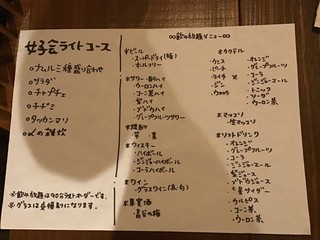 女子会ライトコース
・ナムル三種盛り合わせ
・サラダ
・チャプチェ
・チヂミ
・タッカンマリ
・〆の雑炊
※飲み放題は90分ラストオーダーです。
※グラスは各種
∞飲み放題メニュー∞
*ビール
・スーパードライ(瓶)
・ホッピー
*サワー・酎ハイ
・ウーロンハイ
・コーン茶ハイ
・紫ハイ
・ブドウハイ
・グレープフルーツサワー
*焼酎
・芋 ・麦
*ウィスキー
・ハイボール
・ジンジャーハイボール
・コーラハイボール
*ワイン
・グラスワイン(赤・白)
*果実酒
*カクテル
カシス
ピーチ
ライチ
ジン
ウォッカ
×
・オレンジ
・グレープフルーツ
・コーラ
・ジンジャーエール
・トニック
・ソーダ
・ウーロン茶
*マッコリ
・生マッコリ
*ソフトドリンク
・オレンジ
・グレープフルーツ
・コーラ
・ジンジャーエール
・カルピス
・コーン茶
・ウーロン茶